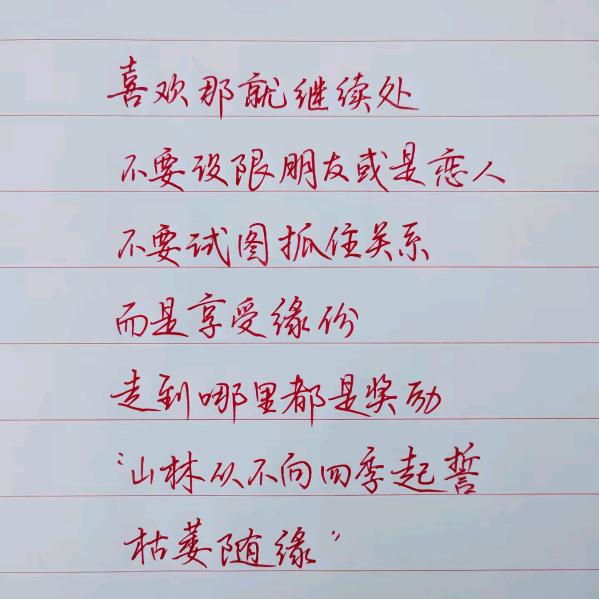 喜欢那就继续处
不要设限朋友或是恋人
不要试图抓住关系
而是享受缘份
走到哪里都是奖励
“山林从不向四季起誓
枯萎随缘”